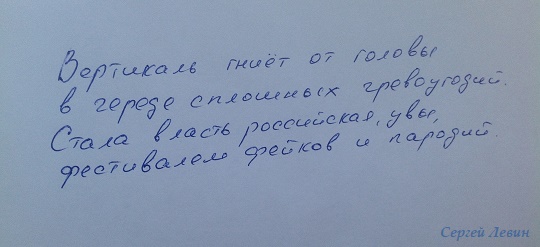 Вертикаль гниёт от головы
в череде сплошных чревоугодий.
Стала власть российская, увы,
фестивалем фейков и пародий.
Сергей Левин